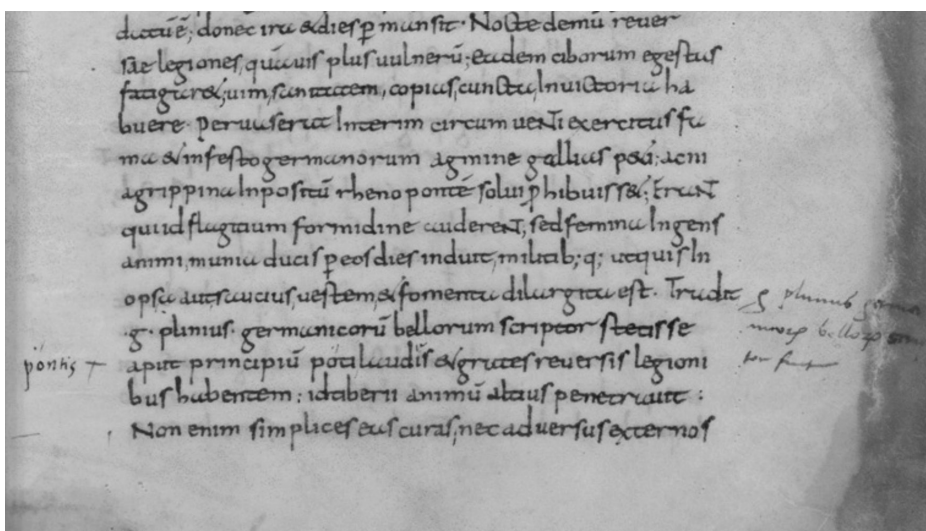 ductūē; donec ira & dies p̄ mansit. Nocte demū rever
sae legiones, quāuis plus uulnerū; eadem ciborum egestas
fatigar&; uim, sanitatem, copias, cuncta, In uictoria ha
buere. peruaserat Interim circum ueNti exercitus fa
ma & infesto germanorum agmine gallias p&i; ac ni
agrippina Inpositū rheno pontē solui p̄hibuiss&; eraNt
qui id flagitium formidine audereNt; sed femina Ingens
animi, munia ducis p̄ eos dies induit, militib; q; ut quis In
opsa aut saucius, uestem, & fomenta dilargita est. Tradit
.g. plinius. germanicorū bellorum scriptor stetisse
aput principiū poti laudis & grates reversis legioni
bus habentem; id tiberii animū altius penetrauit;
Non enim simplices eas curas, nec adversus externos
pontis +
g plinius germa
bello
tor fuit